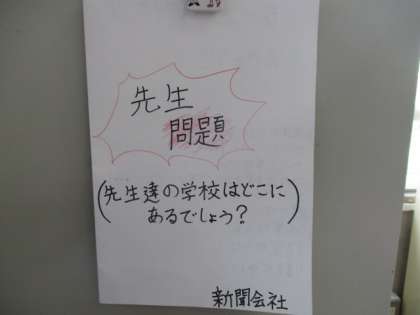 先生
問題
(先生達の学校はどこに
あるでしょう?)
新聞会社